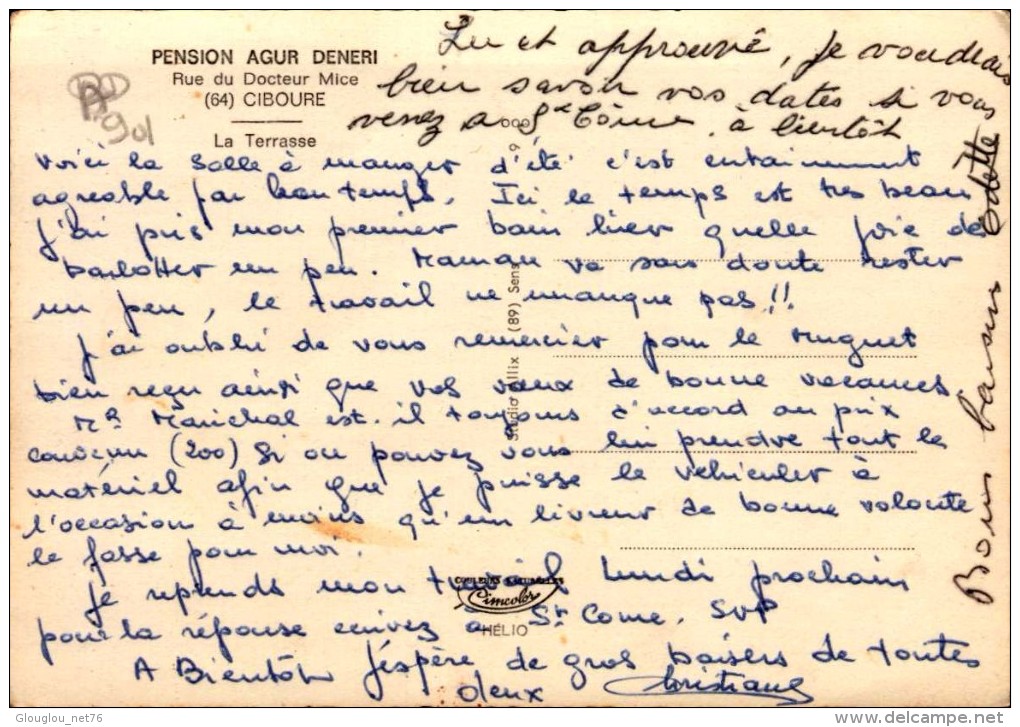 PENSION AGUR DENERI
Rue du Docteur Mice
(64) CIBOURE
La Terrasse
Lu et approuvé, je voudrais
bien savoir vos dates si vous
venez a St Côme, à bientôt
Bons baisers Odette
Voici la salle à manger d'été c'est entairement
agreable par beau temps. Ici le temps est tres beau
j'ai pris mon premier bain hier quelle joie de
barbotter un peu. Maman va sans doute rester
un peu, le travail ne manque pas !!
J'ai oublié de vous remercier pour le muguet
bien reçu ainsi que vos vœux de bonne vacances
Mr Maréchal est-il toujours d'accord au prix
convenu (200) Si oui pouvez vous lui prendre tout le
matériel afin que je puisse le vehiculer à
l'occasion à moins qu'un livreur de bonne volonte
le fasse pour moi.
Je reprends mon travail Lundi prochain
pour la réponse ecrivez à St Come. SVP
A Bientôt J'éspère de gros baisers de toutes
deux Christiane
Studio Allix (89) Sens
COULEURS NATURELLES
Cimcolor
HELIO
Glouglou_net76
delcampe.net